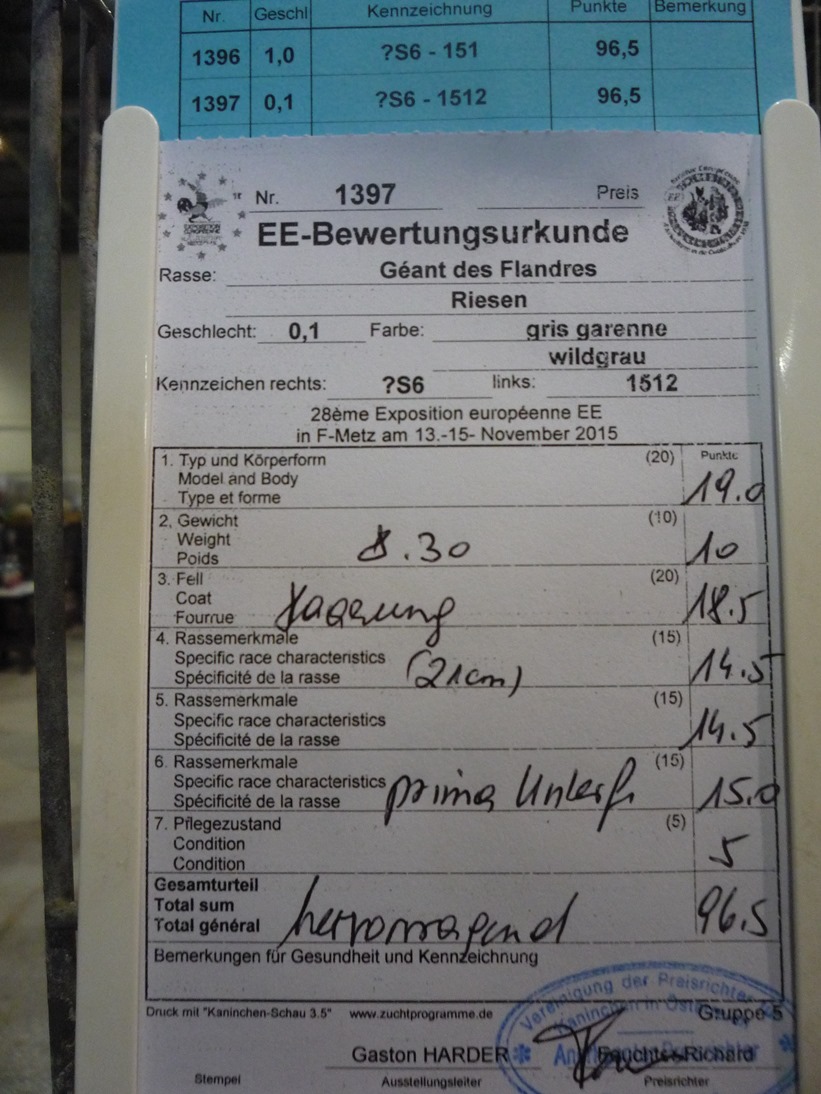 Nr. Geschl Kennzeichnung Punkte Bemerkung
1396 1,0 ?S6 - 151 96,5
1397 0,1 ?S6 - 1512 96,5
Nr. 1397 Preis
EE-Bewertungsurkunde
Rasse: Géant des Flandres
Riesen
Geschlecht: 0,1 Farbe: gris garenne
wildgrau
Kennzeichen rechts: ?S6 links: 1512
28ème Exposition européenne EE
in F-Metz am 13.-15- November 2015
1. Typ und Körperform (20) Punkte
Model and Body
Type et forme 19.0
2. Gewicht (10)
Weight
Poids 8.30 10
3. Fell (20)
Coat
Fourrue Haarung 18.5
4. Rassemerkmale (15)
Specific race characteristics
Spécificité de la rasse (21cm) 14.5
5. Rassemerkmale (15)
Specific race characteristics
Spécificité de la rasse 14.5
6. Rassemerkmale (15)
Specific race characteristics
Spécificité de la rasse prima Unterf 15.0
7. Pflegezustand (5)
Condition
Condition 5
Gesamturteil
Total sum
Total général hervorragend 96.5
Bemerkungen für Gesundheit und Kennzeichnung
Vereinigung der Preisrichter
Kaninchen in
Druck mit "Kaninchen-Schau 3.5" www.zuchtprogramme.de Gruppe 5
Gaston HARDER Richard
Stempel Ausstellungsleiter Preisrichter